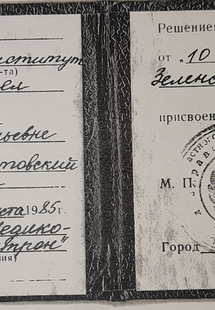 институт
-та)
ел
ьевне
товский
1985г.
едико-
трон"
ния)
Решением
от „10
Зеленс
присвоен
М. П.
Город